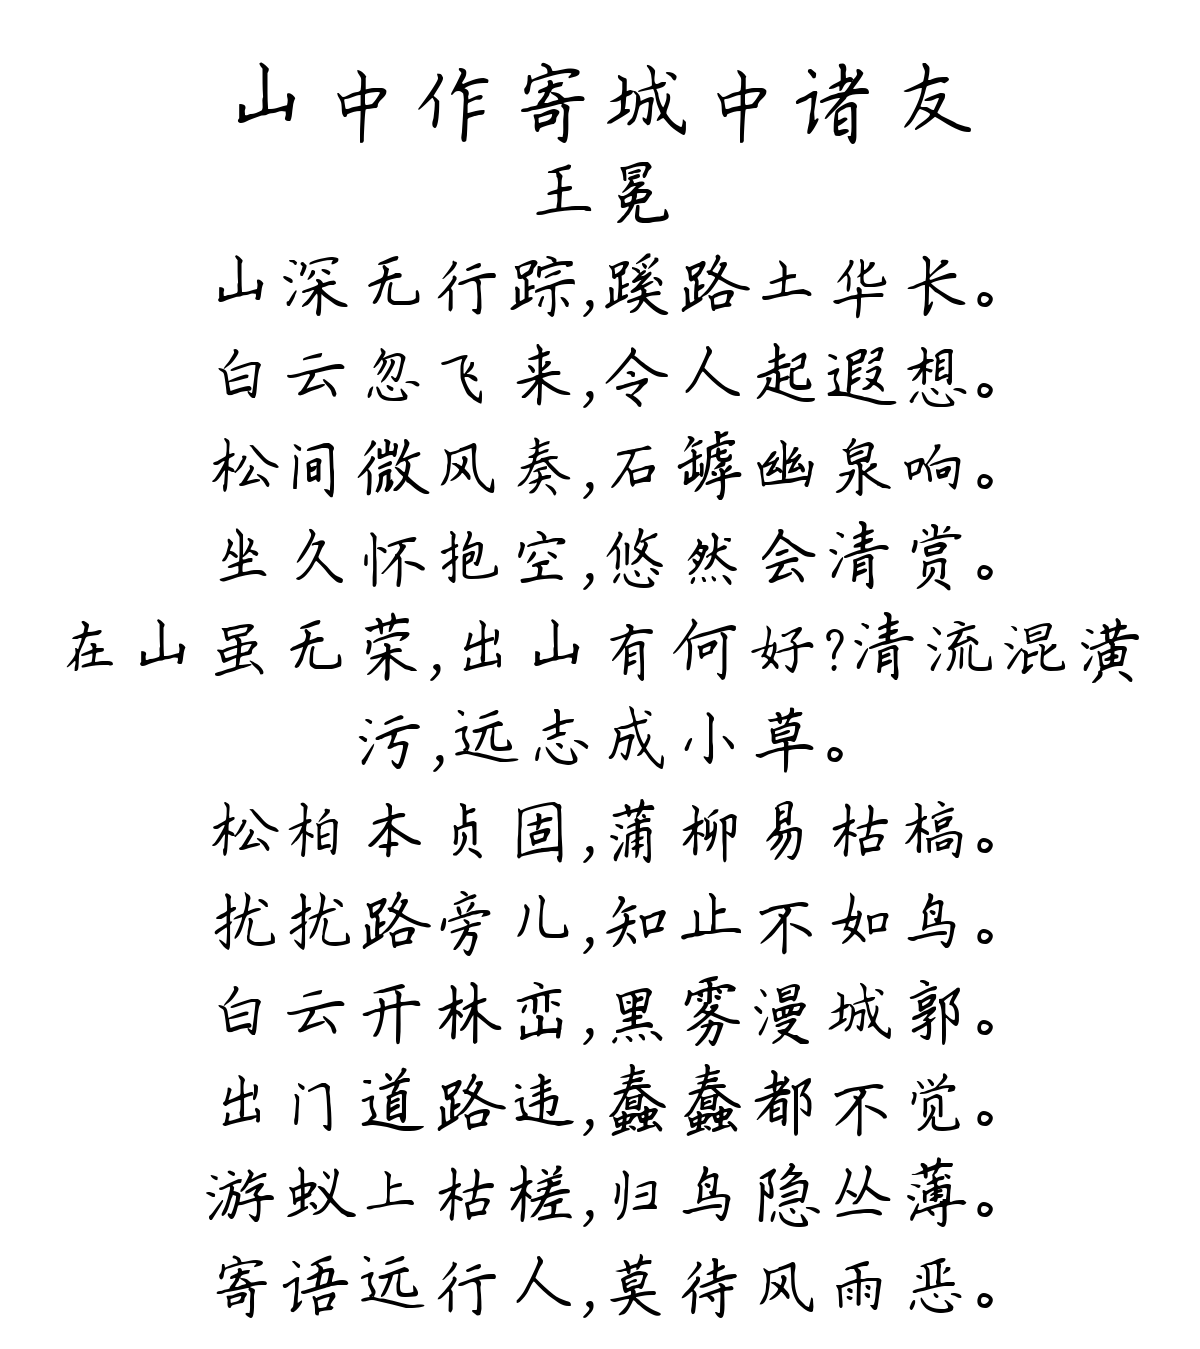 山中作寄城中诸友
王冕
山深无行踪,蹊路土华长。
白云忽飞来,令人起遐想。
松间微风奏,石罅幽泉响。
坐久怀抱空,悠然会清赏。
在山虽无荣,出山有何好?清流混潢
污,远志成小草。
松柏本贞固,蒲柳易枯槁。
扰扰路旁儿,知止不如鸟。
白云开林峦,黑雾漫城郭。
出门道路违,蠢蠢都不觉。
游蚁上枯槎,归鸟隐丛薄。
寄语远行人,莫待风雨恶。